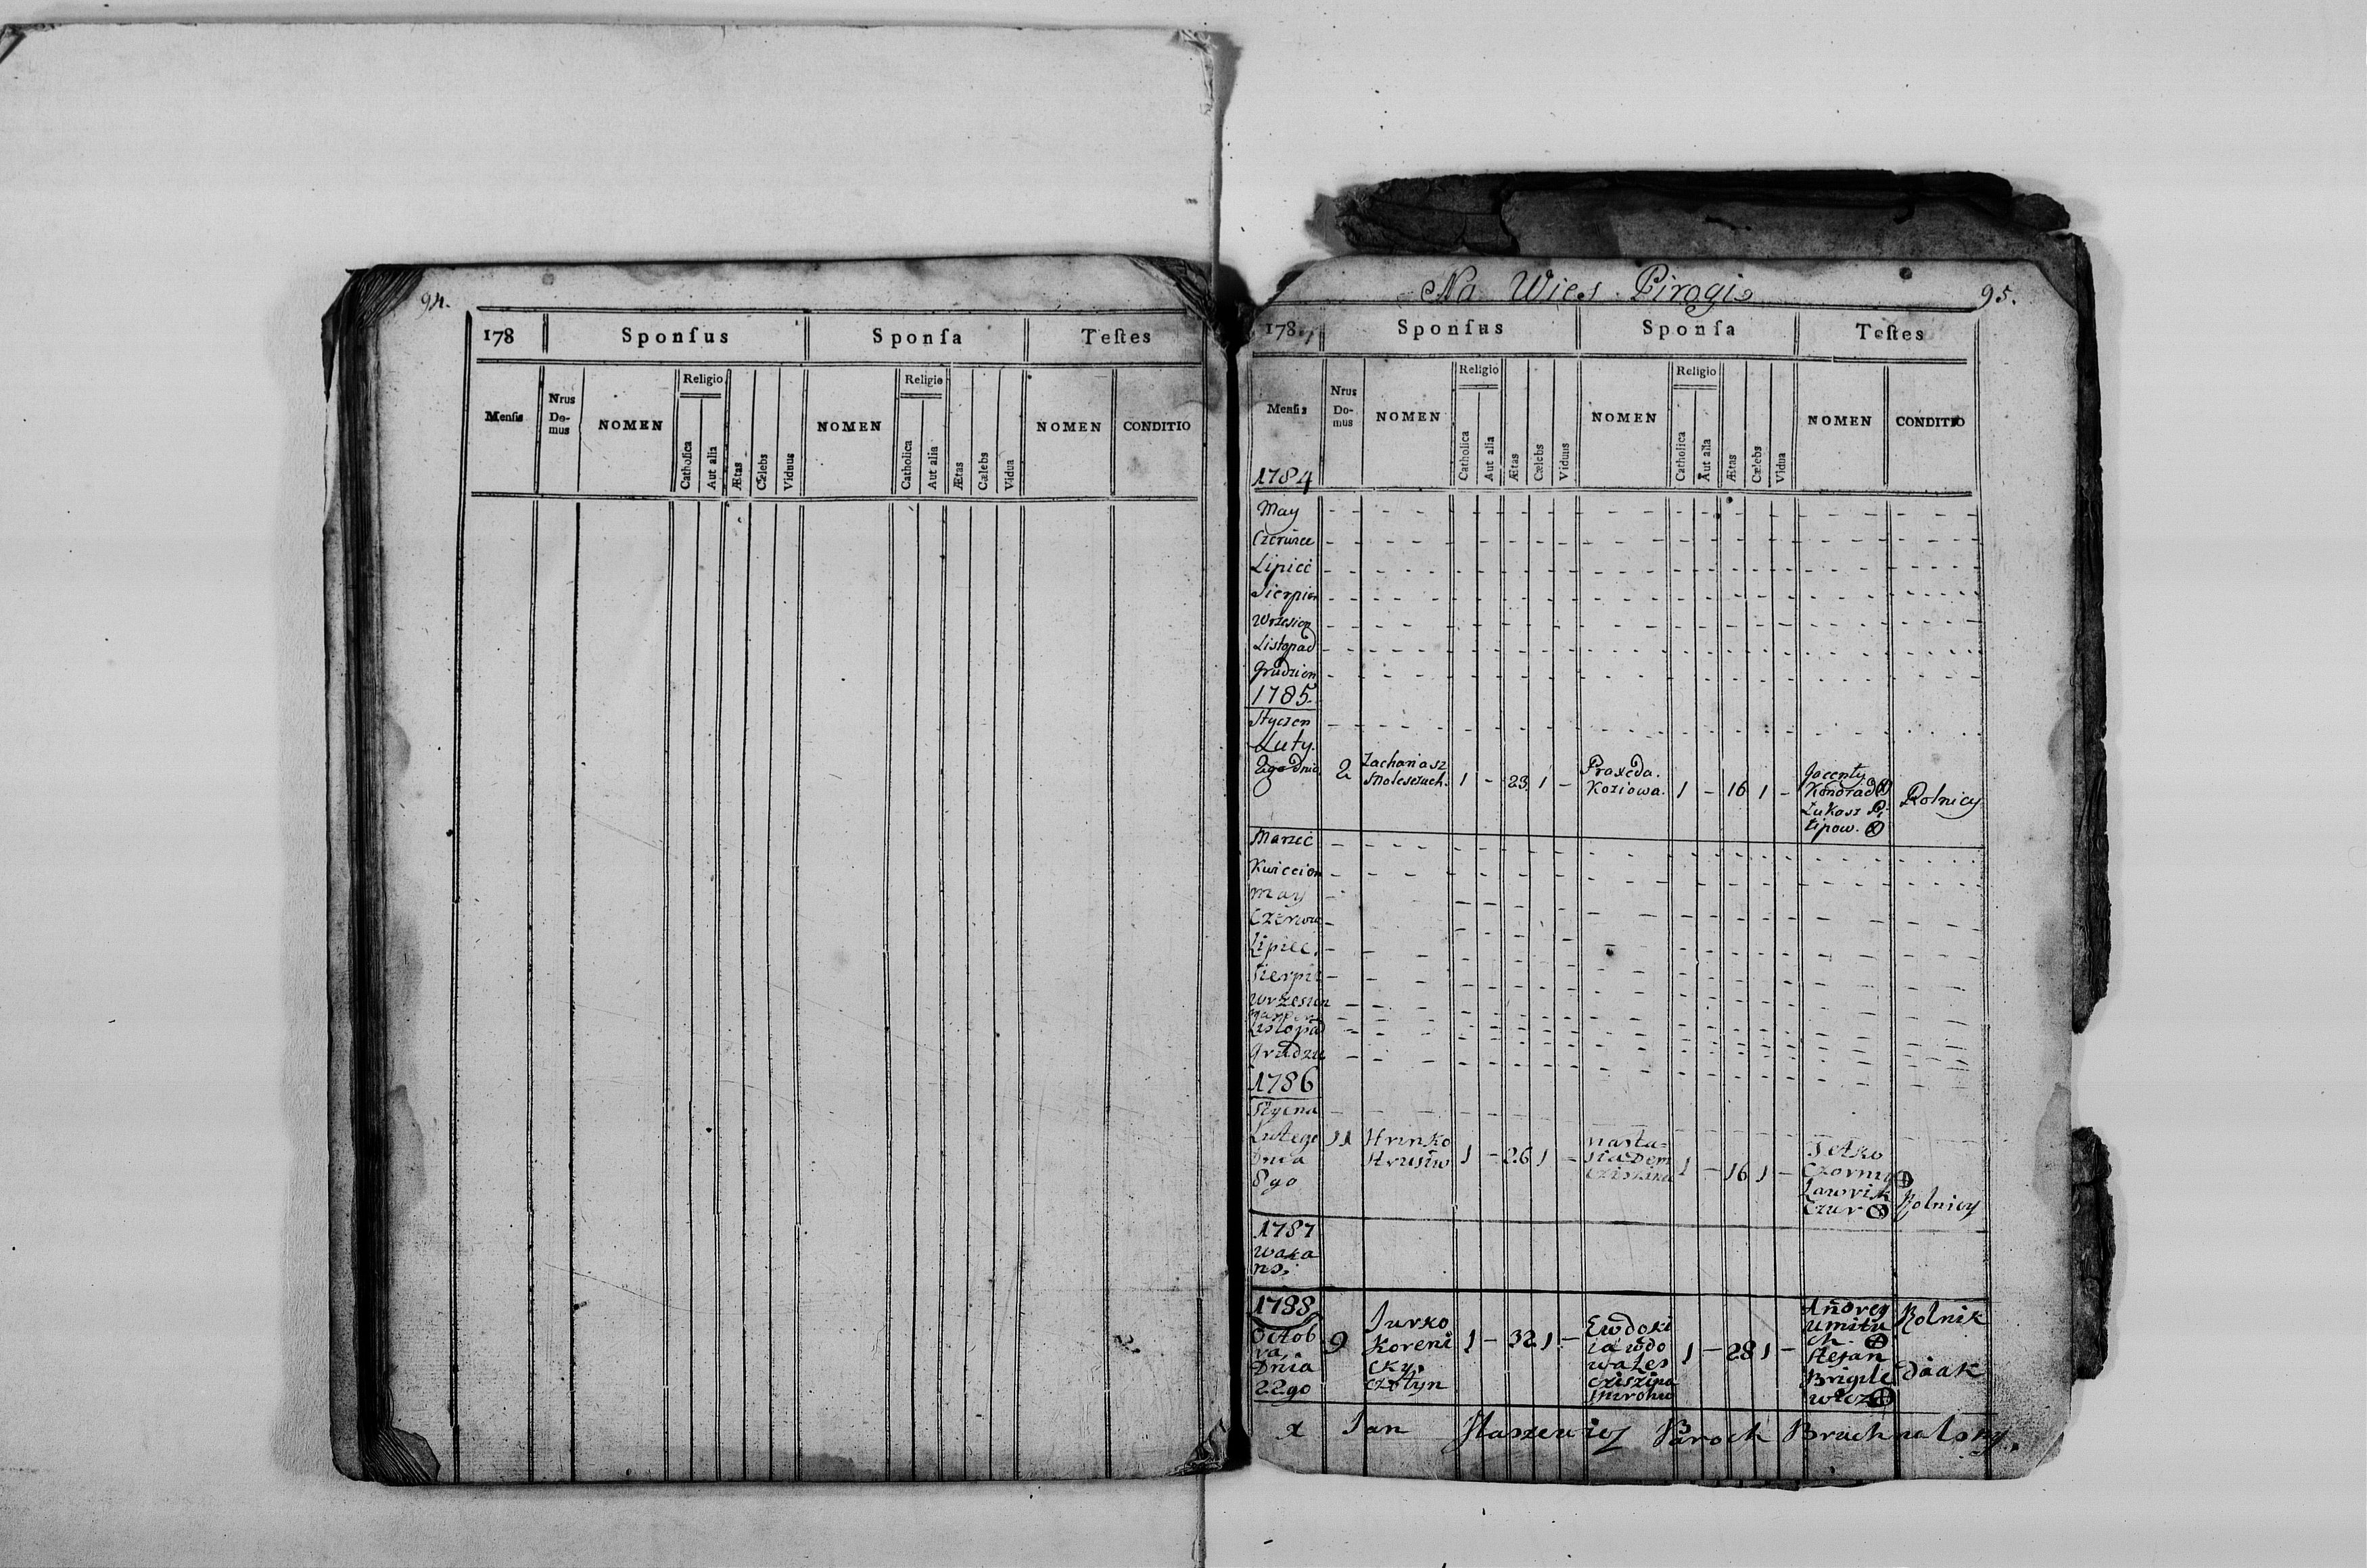 94.
178 Sponſus Sponſa Teſtes
Menſis Nrus Do-mus NOMEN Religio Catholica Aut alia Ætas Cælebs Viduus NOMEN Religio Catholica Aut alia Ætas Cælebs Vidua NOMEN CONDITIO
Na Wies Pirogi
95.
178 Sponſus Sponſa Teſtes
Menſis Nrus Do-mus NOMEN Religio Catholica Aut alia Ætas Cælebs Viduus NOMEN Religio Catholica Aut alia Ætas Cælebs Vidua NOMEN CONDITIO
1784
May
Czerwiec
Lipiec
Sierpien
Wrzesien
Listopad
Grudzien
1785.
Styczen
Luty.
2go Dnia 2 Zachariasz 1 - 23 1 - Praxeda. Koziowa. 1 - 16 1 - Jacenty Konorad Łukasz Rolnicy
Marzec
Kwiecien
May
Czerwie
Lipiec.
Sierpie
Wrzesien
Listopad
Grudzie
1786
Stycna
Lutego Dnia 8go 11 Hrinko 1 - 26 1 - Nasta= 1 - 16 1 - Czorny Rolnicy
1787
waka
ns.
1788
Octob
ra
Dnia
22go 9 Jurko Koreni cky. 1 - 32 1 - Ewdoki ia wdo wa 1 - 28 1 - Andrey Stefan Rolnik diak
x Jan Paroch